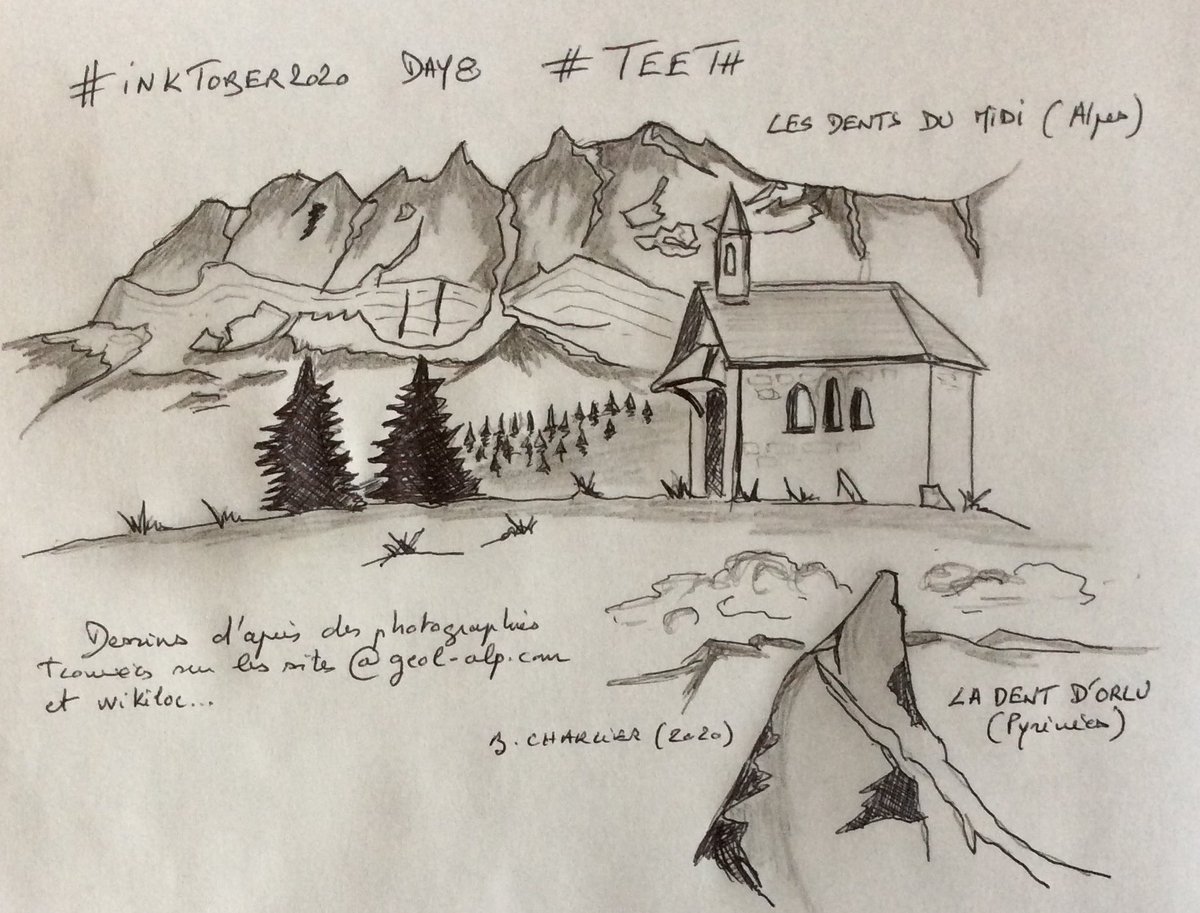 #INKTOBER2020 DAY8 #TEETH
LES DENTS DU MIDI (Alpes)
Dessins d'après des photographies
trouvées sur les sites @geol-alp.com
et wikiloc...
LA DENT D'ORLU
(Pyrénées)
B. CHARLIER (2020)